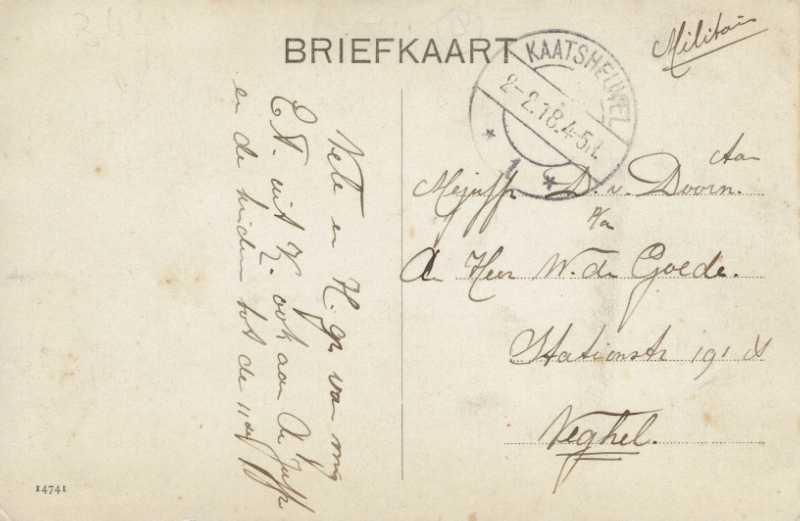 BRIEFKAART
Militair
KAATSHEUVEL
2-2.18.4-5N.
1
Aan
Mejuffr D. v. Doorn.
p/a
Den Heer W. de Goede.
Stationstr 191
Veghel.
Vele en H. gr van mij
E.A. uit K. ook aan de Juffr
en de kinderen tot de 11 de
14741